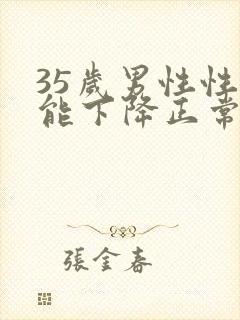 35歲男性性
能下降正常
張金春